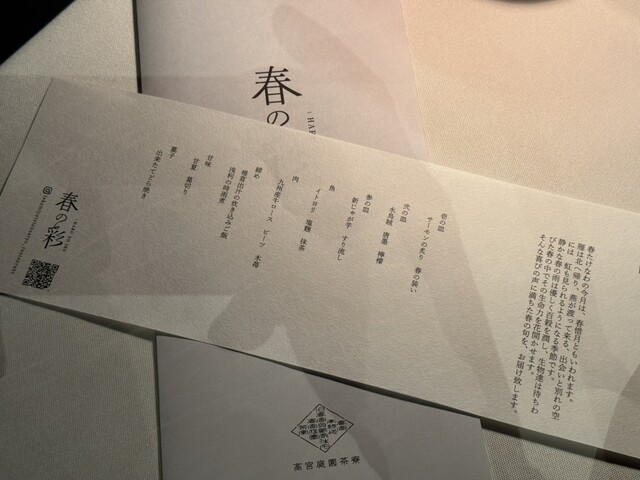 春たけなわの今月は、春惜月ともいわれます。
雁は北へ帰り、燕が渡って来る、出会いと別れの空
には 虹も見られるようになる季節です。
静かな春の雨は優しく百穀を潤し、生物達は待ちわ
びた春の中でその生命力を花開かせます。
そんな喜びの声に満ちた春の旬を、お届け致します。
壱の皿
サーモンの炙り 春の装い
弐の皿
水烏賊 唐墨 檸檬
参の皿
新じゃが芋 すり流し
魚
イトヨリ 塩麹 抹茶
肉
九州産牛ロース ビーツ 木苺
締め
椎茸出汁の炊き込みご飯
浅利の時雨煮
甘味
甘夏 葛切り
菓子
出来たてどら焼き
春の彩
春の
高宮庭園茶寮